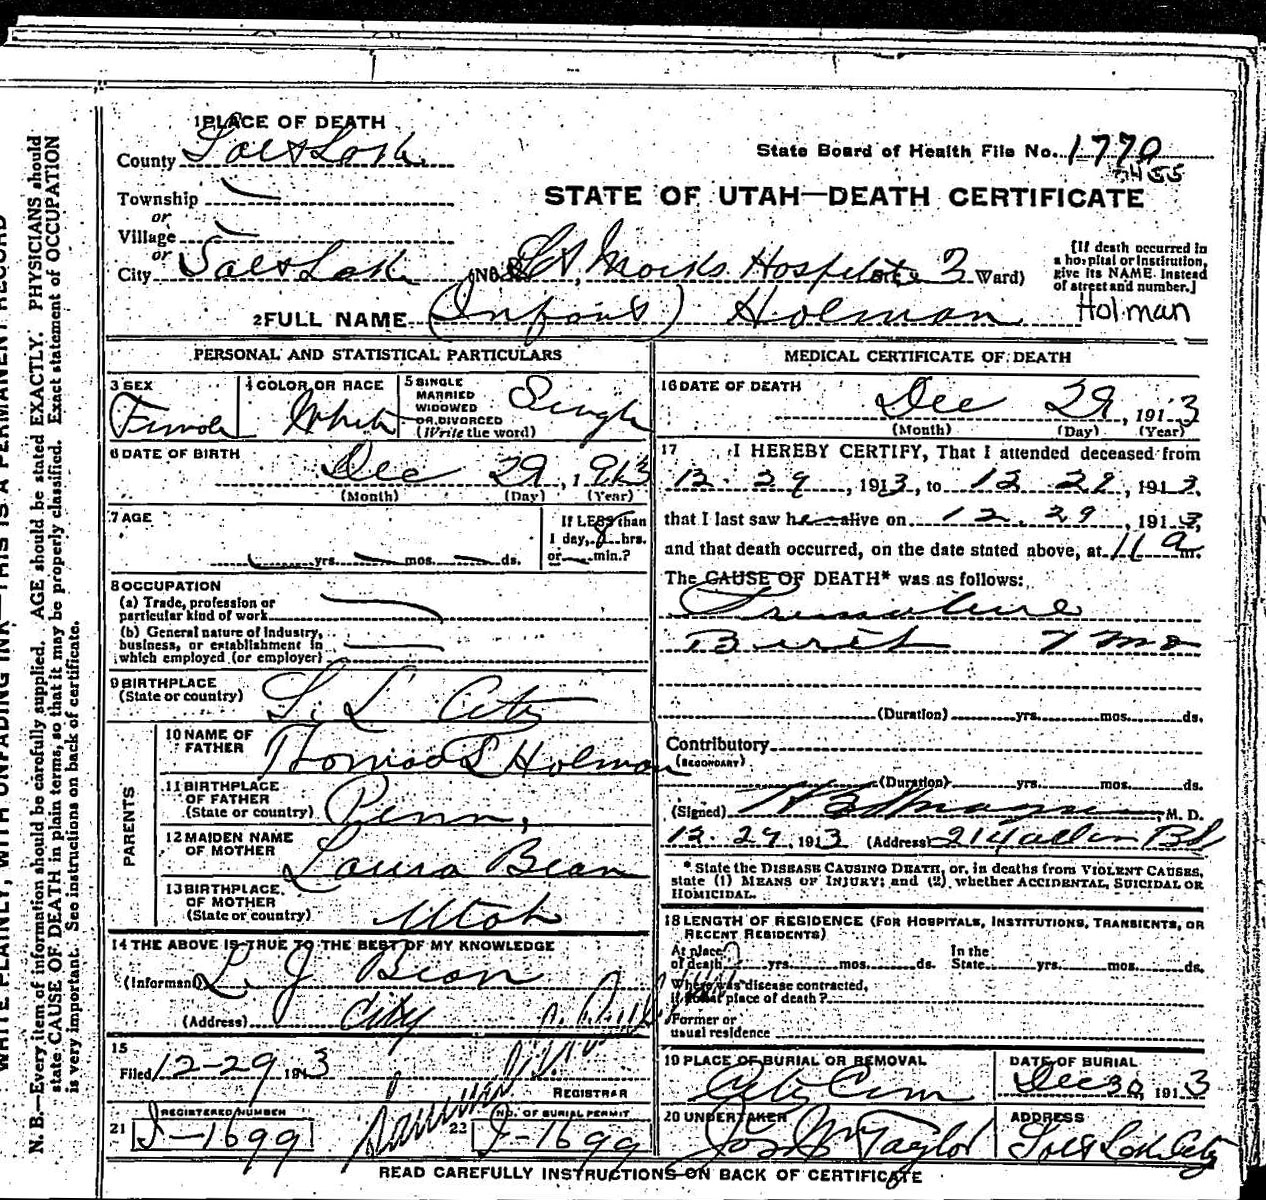 1 PLACE OF DEATH
County Salt Lake
State Board of Health File No. 1770
3455
Township
or
Village
or
City Salt Lake (No. St Marks Hospital 3 Ward)
STATE OF UTAH—DEATH CERTIFICATE
[If death occurred in
a hospital or institution,
give its NAME instead
of street and number.]
2 FULL NAME (Infant) Holman
Holman
PERSONAL AND STATISTICAL PARTICULARS
3 SEX
Female
4 COLOR OR RACE
White
5 SINGLE
MARRIED
WIDOWED
OR DIVORCED
(Write the word)
Single
6 DATE OF BIRTH
Dec 29, 1913
(Month) (Day) (Year)
7 AGE
yrs. mos. ds.
If LESS than
1 day, 8 hrs.
or min.?
8 OCCUPATION
(a) Trade, profession or
particular kind of work
(b) General nature of Industry,
business, or establishment in
which employed (or employer)
9 BIRTHPLACE
(State or country) S. L. City
PARENTS
10 NAME OF
FATHER Thomas S Holman
11 BIRTHPLACE
OF FATHER
(State or country) Penn,
12 MAIDEN NAME
OF MOTHER Laura Bean
13 BIRTHPLACE
OF MOTHER
(State or country) Utah
14 THE ABOVE IS TRUE TO THE BEST OF MY KNOWLEDGE
(Informant) L. J. Bean
(Address) City
15
Filed 12-29 1913
REGISTRAR
REGISTERED NUMBER
21 J-1699
NO. OF BURIAL PERMIT
23 J-1699
MEDICAL CERTIFICATE OF DEATH
16 DATE OF DEATH
Dec 29, 1913
(Month) (Day) (Year)
17 I HEREBY CERTIFY, That I attended deceased from
12. 29, 1913, to 12 29, 1913,
that I last saw h alive on 12. 29, 1913,
and that death occurred, on the date stated above, at 11 a m.
The CAUSE OF DEATH* was as follows:
Premature
Birth 7 mo
(Duration) yrs. mos. ds.
Contributory
(SECONDARY)
(Duration) yrs. mos. ds.
(Signed) M. D.
12-29, 1913 (Address) 214
* State the DISEASE CAUSING DEATH, or, in deaths from VIOLENT CAUSES,
state (1) MEANS OF INJURY; and (2) whether ACCIDENTAL, SUICIDAL OR
HOMICIDAL.
18 LENGTH OF RESIDENCE (FOR HOSPITALS, INSTITUTIONS, TRANSIENTS, OR
RECENT RESIDENTS)
At place
of death yrs. mos. ds. In the
State yrs. mos. ds.
Where was disease contracted,
if not at place of death?
Former or
usual residence
19 PLACE OF BURIAL OR REMOVAL
City Cem
DATE OF BURIAL
Dec 30, 1913
20 UNDERTAKER
Jos Wm Taylor
ADDRESS
Salt Lake City
READ CAREFULLY INSTRUCTIONS ON BACK OF CERTIFICATE
WRITE PLAINLY, WITH UNFADING INK—THIS IS A PERMANENT RECORD
N. B.—Every item of information should be carefully supplied. AGE should be stated EXACTLY. PHYSICIANS should
state CAUSE OF DEATH in plain terms, so that it may be properly classified. Exact statement of OCCUPATION
is very important. See instructions on back of certificate.